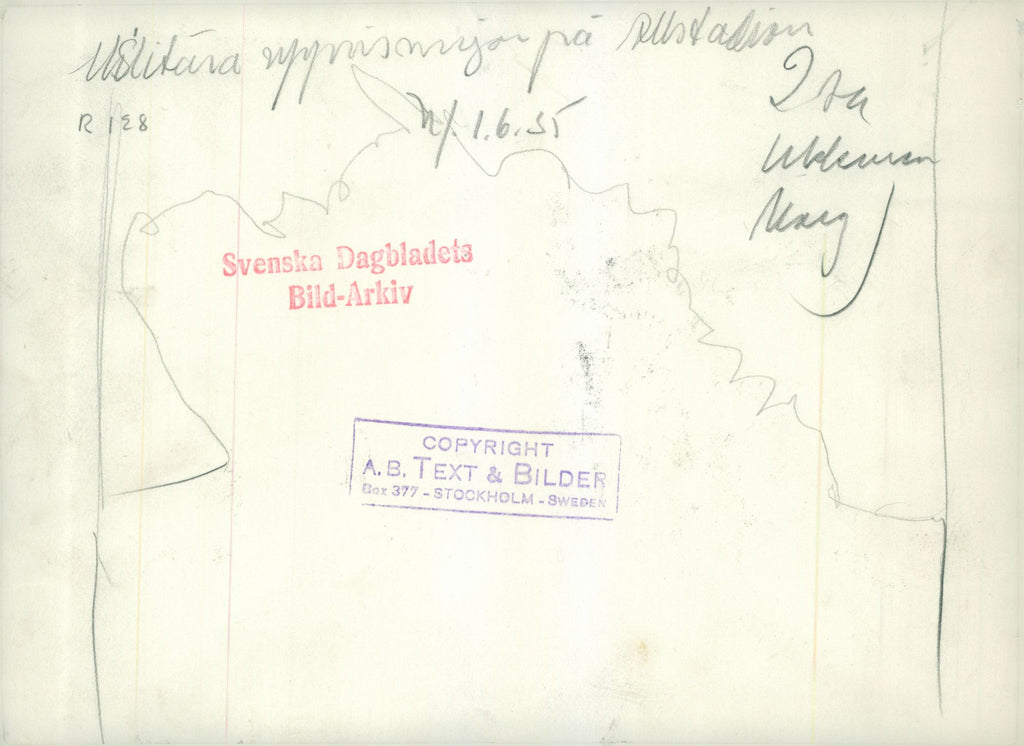 Militära uppvisningar på Stadion
R 128
1.6.35
2 sp
Svenska Dagbladets
Bild-Arkiv
COPYRIGHT
A.B. TEXT & BILDER
Box 377 - STOCKHOLM - SWEDEN